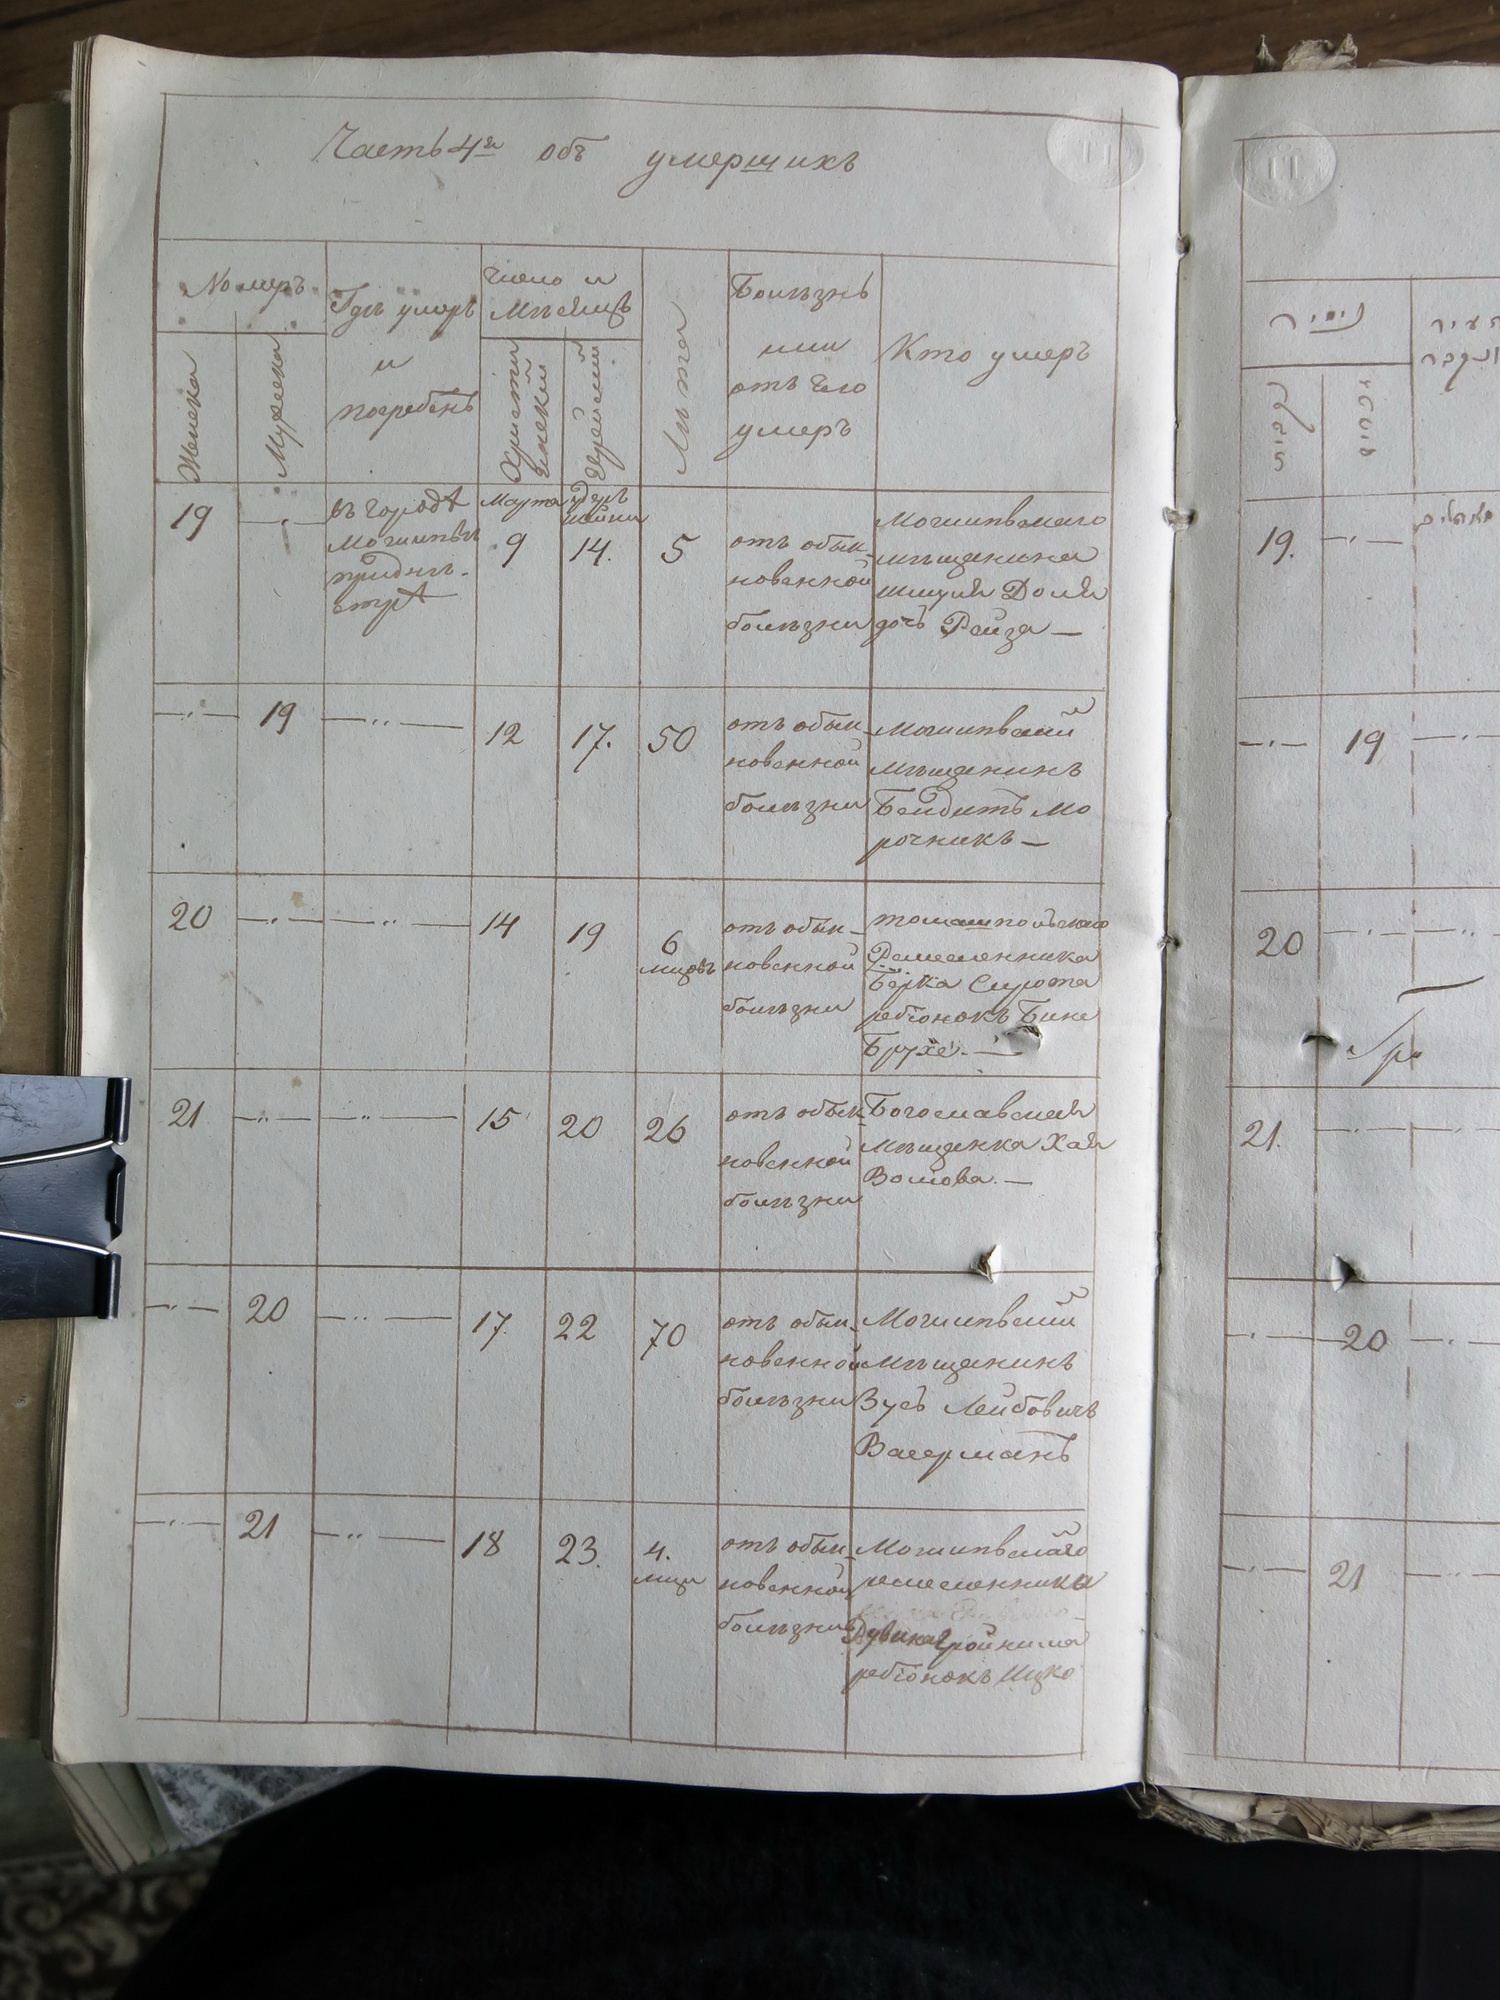 Часть 4я объ умерщихъ
Номеръ
Женска
Мужеска
Гдѣ умеръ
и
погребенъ
Число и
Мѣсяцъ
Христи
янский
Еврейский
Лѣта
Болѣзнь
или
отъ чего
умеръ
Кто умеръ
19
въ городѣ
Могилевѣ
придне-
стрѣ
Марта
9
14.
5
отъ обык-
новенной
болѣзни
Могилевскаго
мѣщанина
дочъ Рейза —
19
12
17.
50
отъ обык-
новенной
болѣзни
Могилевский
мѣщанинъ
Бендитъ Мо
рочникъ —
20
14
19
6
отъ обык-
новенной
болѣзни
томашпольскаго
Ремесленника
Берка Сирота
ребіонокъ Бине
Брухе. —
21
15
20
26
отъ обык-
новенной
болѣзни
Богославская
Мѣщанка Хая
Волова. —
20
17.
22
70
отъ обык-
новенной
болѣзни
Могилевский
мѣщанинъ
Зусъ Лейбовичъ
Васерманъ
21
18
23.
4.
отъ обык-
новенной
болѣзни
Могилевскаго
ремесленника
ребіонокъ Ицко
19.
19
20
21.
20
21